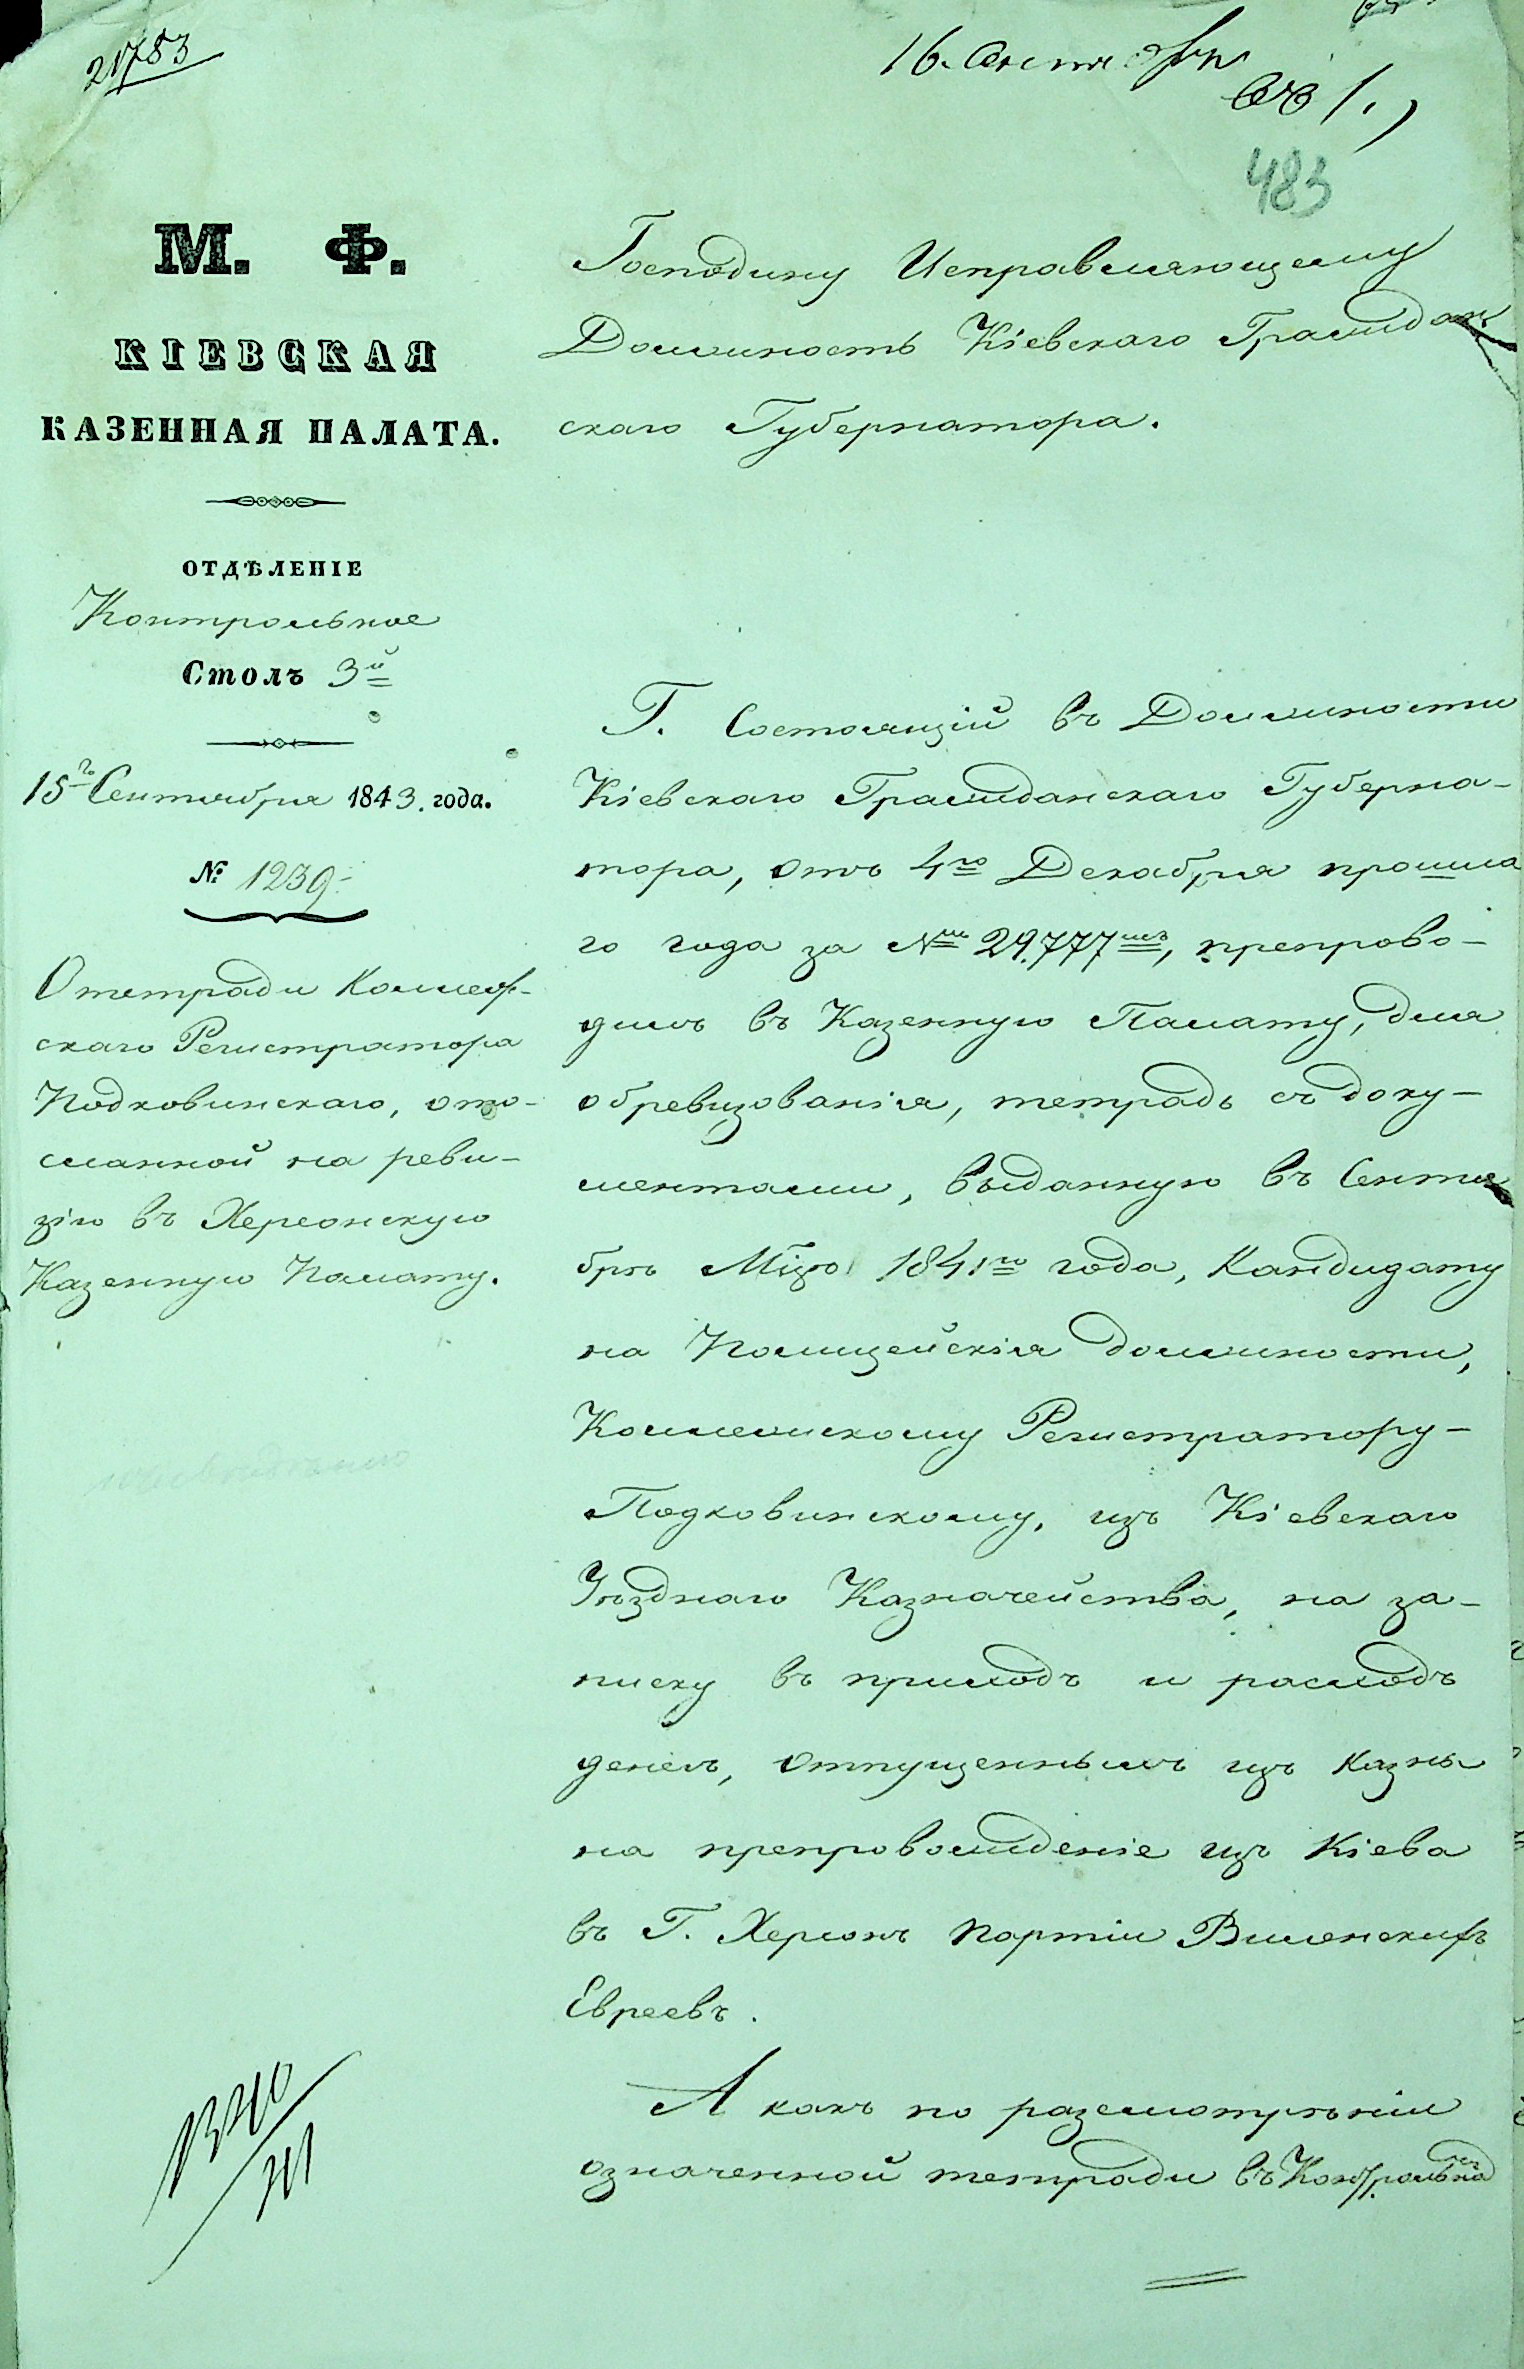 21783
16. Сентября
483
М. Ф.
КІЕВСКАЯ
КАЗЕННАЯ ПАЛАТА.
ОТДѢЛЕНІЕ
Контрольное
Столъ 3й
15го Сентября 1843. года.
№ 1239.
О тетради Коллеж-
скаго Регистратора
Подковинскаго, ото-
сланной на реви-
зію въ Херсонскую
Казенную Палату.
Господину Исправляющему
Должность Кіевскаго Граждан
скаго Губернатора.
Г. Состоящій въ Должности
Кіевскаго Гражданскаго Губерна-
тора, отъ 4го Декабря прошла
го года за №мъ 29.777мъ, препрово-
дилъ въ Казенную Палату, для
обревизованія, тетрадь съ доку-
ментами, выданную въ Сентя
брѣ М-цѣ 1841го года, Кандидату
на Полицейскія должности,
Коллежскому Регистратору-
Подковинскому, изъ Кіевскаго
Уѣзднаго Казначейства, на за-
писку въ приходъ и расходъ
денегъ, отпущеннымъ изъ казны
на препровожденіе изъ Кіева
въ Г. Херсонъ партіи Виленскихъ
Евреевъ.
А какъ по разсмотрѣніи
означенной тетради въ Контрольно